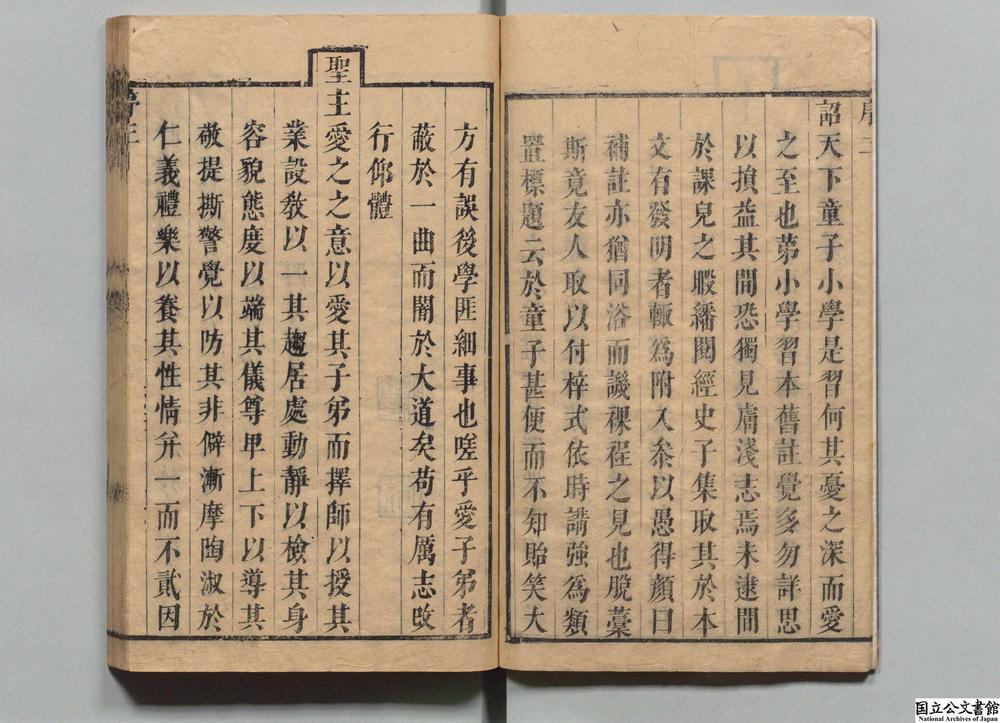 詔天下童子小學是習何其憂之深而愛
之至也苐小學習本舊註覺多勿詳思
以損益其間恐獨見膚淺志焉未逮間
於課兒之暇繙閱經史子集取其於本
文有發明者輙爲附入叅以愚得顏曰
補註亦猶同浴而譏裸裎之見也脫藁
斯竟友人取以付梓式依時講強爲類
置標題云於童子甚便而不知貽笑大
方有誤後學匪細事也嗟乎愛子弟者
蔽於一曲而闇於大道矣苟有厲志攺
行仰體
聖主愛之之意以愛其子弟而擇師以授其
業設敎以一其趨居處動靜以檢其身
容貌態度以端其儀尊卑上下以導其
敬提撕警覺以防其非僻漸摩陶淑於
仁義禮樂以養其性情弁一而不貳因
國立公文書館
National Archives of Japan